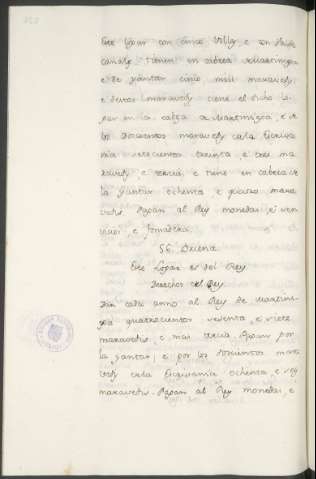 Este logar con cinco villas e con su
tienen en cabeza Martiniega
e de yantar cinco mill maravedis
e tiene el dicho lo
gar en la caleza de Martiniega, e de
los docientos maravedis de la Escriva
nia setecientos treinta, e tres ma
ravedis, e tercia, e tiene en cabeza de
la yantar ochenta, e quatro mara
vedis. Pagan al Rey monedas, e ser
vicios, e fonsadera.
56. Duena
Este Logar es del Rey
Derechos del Rey.
Dan cada anno al Rey de Martini
ega quatrocientos sesenta, e siete
maravedis, e mas tercia. Pagan por
la yantar, e por los docientos mara
vedis de la Escrivania ochenta, e seis
maravedis. Pagan al Rey monedas, e